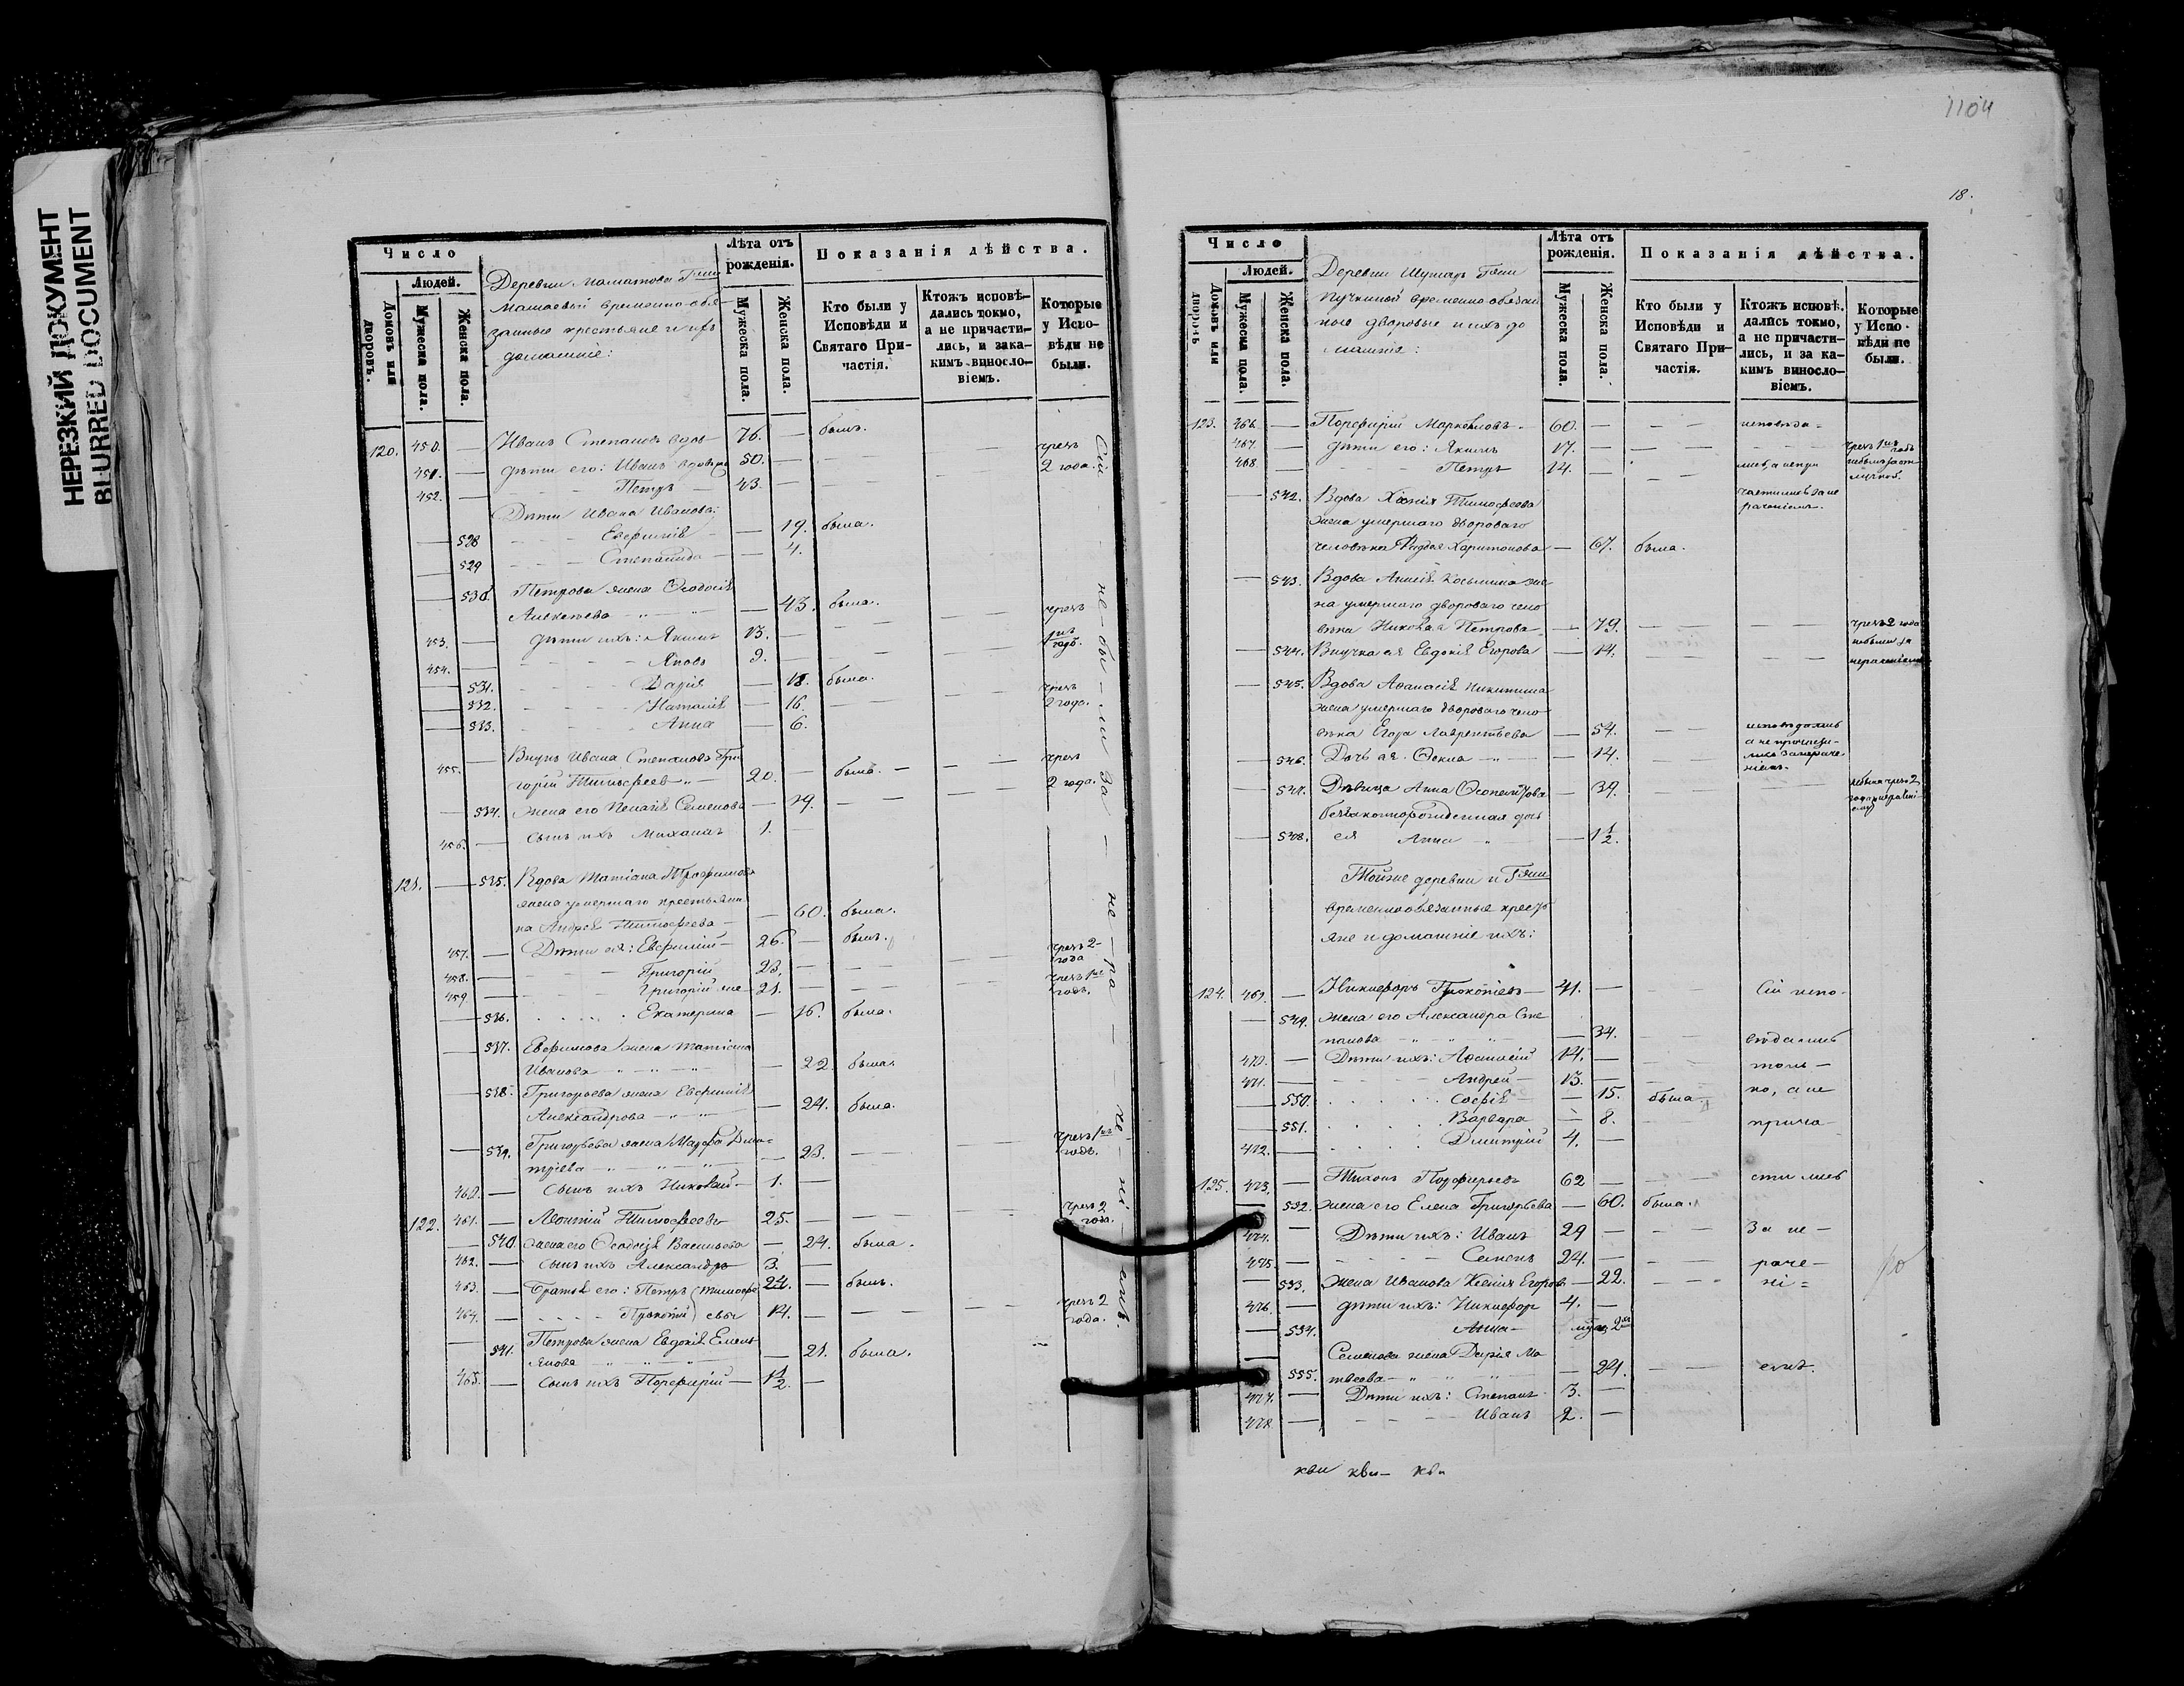 НЕРЕЗКИЙ ДОКУМЕНТ
BLURRED DOCUMENT
Число
Людей.
Домовъ или дворовъ.
Мужеска пола.
Женска пола.
Деревни
временно-обя-
занные крестьяне и ихъ
домашніе:
Лѣта отъ рожденія.
Мужеска пола.
Женска пола.
Показанія дѣйства.
Кто были у Исповѣди и Святаго При-частія.
Ктожъ исповѣ-дались токмо, а не причасти-лись, и за ка-кимъ виносло-віемъ.
Которые у Испо-вѣди не были.
120. 450. — Иванъ Степановъ вдов 76. — былъ.
451. — дѣти его: Иванъ вдовъ 50. — чрезъ 2 года.
452. — Петръ — 43.
Дѣти Ивана Иванова:
528 Евфимія — 19. была.
529 Степанида — 4.
530. Петрова жена Ѳеодосія
Алексѣева — 43. была.
453. — дѣти ихъ: Якимъ 13. — чрезъ 1 годъ.
454. — Яковъ 9. —
531. Дарія — 18. была.
532. Наталія — 16. чрезъ 2 года.
533. Анна — 6.
455. — Внукъ Ивана Степанова Гри
горій Тимофеев — 20. — была. — чрезъ 2 года.
534. жена его Пелагія Семенова — 19.
456. — сынъ ихъ Михаилъ 1.
121. — 535. Вдова Татіана Трофимова
жена умершаго крестьяни
на Андрея Тимофеева — 60. была.
457. — Дѣти ея: Евфимій — 26. — былъ.
458. — Григорій 23. — чрезъ 2 года
459 — Григорій же — 21. — чрезъ 1 годъ.
536. Екатерина — 16. была.
537. Евфимова жена Татіана
Иванова — 22. была.
538. Григорьева жена Евфимія
Александрова — 24. была.
539. Григорьева жена Марфа Дми-
тріева — 23. чрезъ 1 годъ.
460. — сынъ ихъ Николай — 1. —
122. 461. — Леонтій Тимофеевъ 25. — чрезъ 2 года.
540 жена его Ѳеодосія Васильева — 24. была.
462. — сынъ ихъ Александръ 3. —
463. — Братья его: Петръ (Тимофе 24. — былъ.
464. — Прокопій) евы 14. — чрезъ 2 года.
541. Петрова жена Евдокія Емель
янова — 21. была.
465. — сынъ ихъ Порфирій — 1½. —
Сіи не-бы-ли за-не-ра-че-ні-емъ.
1104
18.
Число
Людей.
Домовъ или дворовъ
Мужеска пола.
Женска пола.
Деревни
Пучкиной временно-обязан
ные дворовые и ихъ до
машнія:
Лѣта отъ рожденія.
Мужеска пола.
Женска пола.
Показанія дѣйства.
Кто были у Исповѣди и Святаго При-частія.
Ктожъ исповѣ-дались токмо, а не причасти-лись, и за ка-кимъ виносло-віемъ.
Которые у Испо-вѣди не были.
123. 466. — Порфирій Маркеловъ. 60. — исповѣда-
467. — дѣти его: Якимъ 17. — чрезъ 1 годъ
468. Петръ 14. лись, а непри
542. Вдова Ксенія Тимофеева
жена умершаго двороваго
человѣка Харитонова — 67. была.
частились за не
раченіемъ.
543. Вдова Анисія Косьмина же
на умершаго двороваго чело
вѣка Николая Петрова — 79. чрезъ 2 года
544. Внучка ея Евдокія Егорова — 14. небыли за
нераченіемъ
545. Вдова Афанасія Никитина
жена умершаго двороваго чело
вѣка Егора Лаврентьева — 54. исповѣдались
546. Дочь ея Ѳекла — 14. а не причасти-
лись за нераче-
ніемъ.
547. Дѣвица Анна — 39. небыла чрезъ 2
беззаконнорожденная дочь
548. ея Анна — 1½.
Тойже деревни и
временнообязанные кресть
яне и домашніе ихъ:
124. 469. — Никифоръ Прокопіевъ — 41. — Сіи испо-
549. жена его Александра Сте
панова — 34. вѣдались
470. — Дѣти ихъ: Афанасій 14. — толь-
471. — Андрей — 13. —
550. Софія — 15. была ко, а не
551. Варвара — 8. прича-
472. — Дмитрій 4. —
125. 473. — Тихонъ Порфирьевъ 62 — стились
552. жена его Елена Григорьева — 60. была.
474. — Дѣти ихъ: Иванъ 29 — За не-
475. — Семенъ 24. — раче-
553. жена Иванова Ксенія Егорова — 22. ні-
476. — дѣти ихъ: Никифор 4. —
554. Анна —
Семенова жена Дарія Ма
555. твеева — 24. емъ.
477. — Дѣти ихъ: Степанъ 3. —
478. — Иванъ 2. —
кви кви— кви